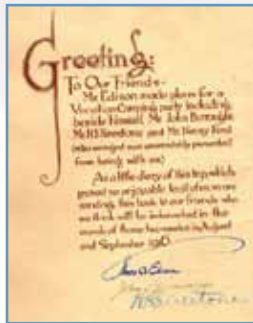 Greeting:
To Our Friends-
Mr. Edison made plans for a
Vacation Camping party including
beside himself, Mr. John Burroughs
Mr. H.S. Firestone and Mr. Henry Ford
(who enroute was unavoidably prevented
from being with us)
As a little diary of this trip which
proved so enjoyable to all of us we are
sending this book to our friends who
we think will be interested in the
records of those two weeks in August
and September 1916.